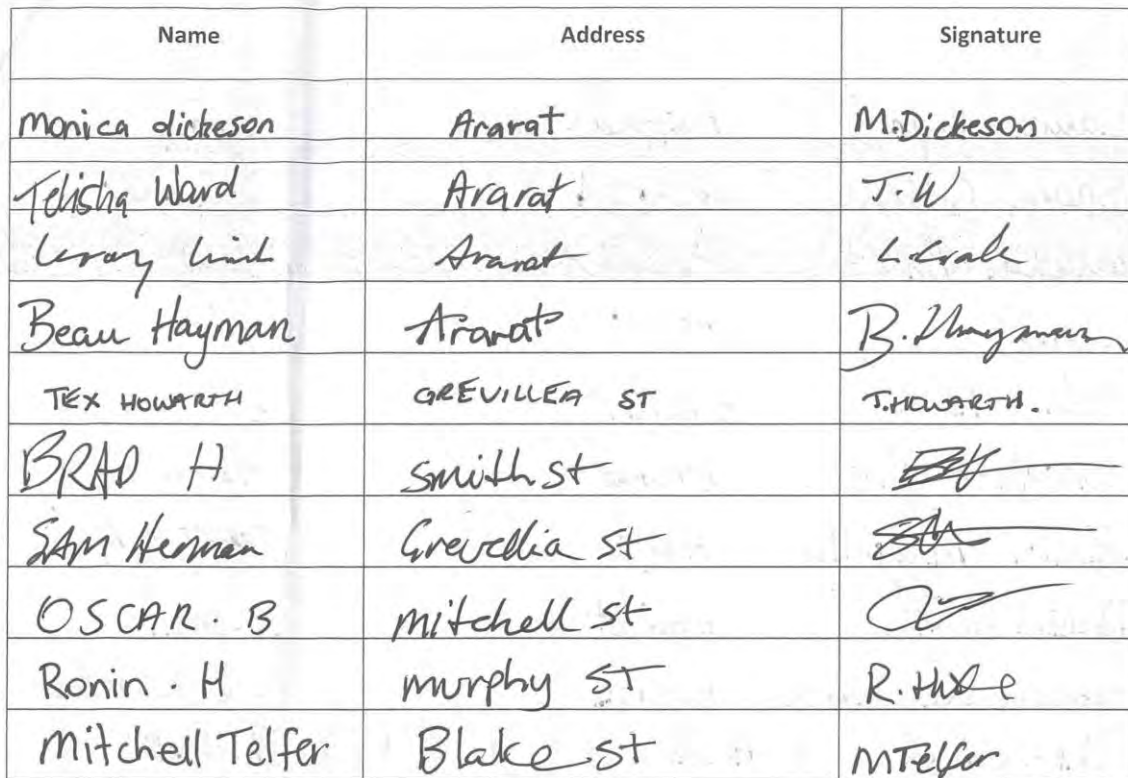 Name Address Signature
Monica dickeson Ararat M.Dickeson
Telisha Ward Ararat. T.W
Leroy Ararat
Beau Hayman Ararat B. Haymen
TEX HOWARTH GREVILLEA ST T.HOWARTH.
BRAD H smith st
SAM Herman Grevellia st
OSCAR. B mitchell st
Ronin. H murphy ST
Mitchell Telfer Blake st MTelfer